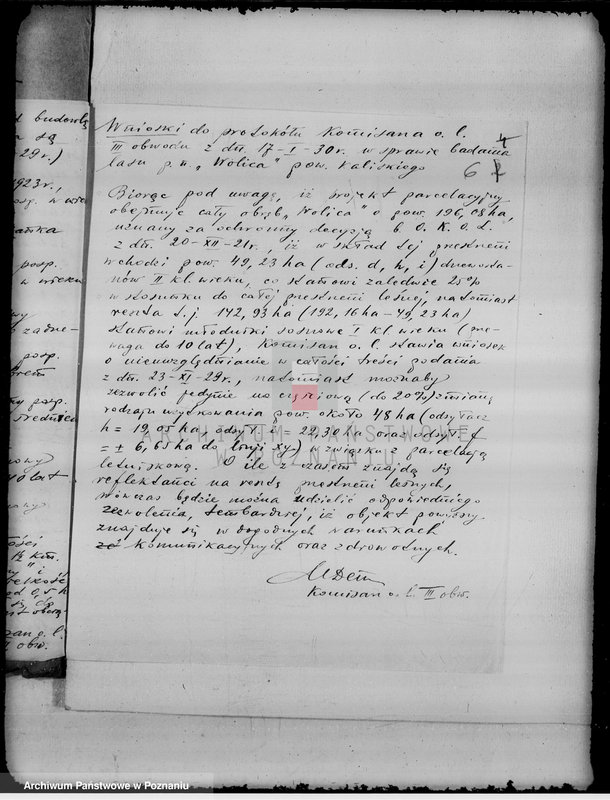 d budowlą
są
-29r.)
1923r.,
w wieku
posp.
w wieku
posp.
posp.
średnica
10 lat
1½ km.
i
III obw.
4
Wnioski do protokółu Komisarza o. l.
III obwodu z dn. 17-I-30r. w sprawie badania
lasu p.n. „Wolica" pow. Kaliskiego
6
Biorąc pod uwagę, iż projekt parcelacyjny
obejmuje cały obręb „Wolica" o pow. 196,08 ha,
uznany za ochronny decyzją b O. K. O. L.
z dn. 20-XII-21r., iż w skład tej przestrzeni
wchodzi pow. 49,23 ha (ods. d, h, i) drzewosta-
nów II kl. wieku, co stanowi zaledwie 25%
w stosunku do całej przestrzeni leśnej, natomiast
reszta t.j. 142,93 ha (192,16 ha - 49,23 ha)
stanowi młodniki sosnowe I kl. wieku (prze-
waga do 10 lat), Komisarz o. l. stawia wniosek
o nieuwzględnianie w całości treści podania
z dn. 23-XI-29r., natomiast możnaby
zezwolić jedynie na częściową (do 20%) zmianę
rodzaju użytkowania pow. około 48 ha (odsyłacz
h = 19,05 ha odsył. i - 22,30 ha oraz odsył. f
= ± 6,65 ha do linji xy) w związku z parcelacją
letniskową. O ile z czasem znajdą się
reflektanci na resztę przestrzeni leśnych,
wówczas będzie można udzielić odpowiedniego
zezwolenia, tembardziej, iż objekt powyższy
znajduje się w dogodnych warunkach
komunikacyjnych oraz zdrowotnych.
Komisarz o. l. III obw.
ARCHIWUM PAŃSTWOWE
W POZNANIU
Archiwum Państwowe w Poznaniu